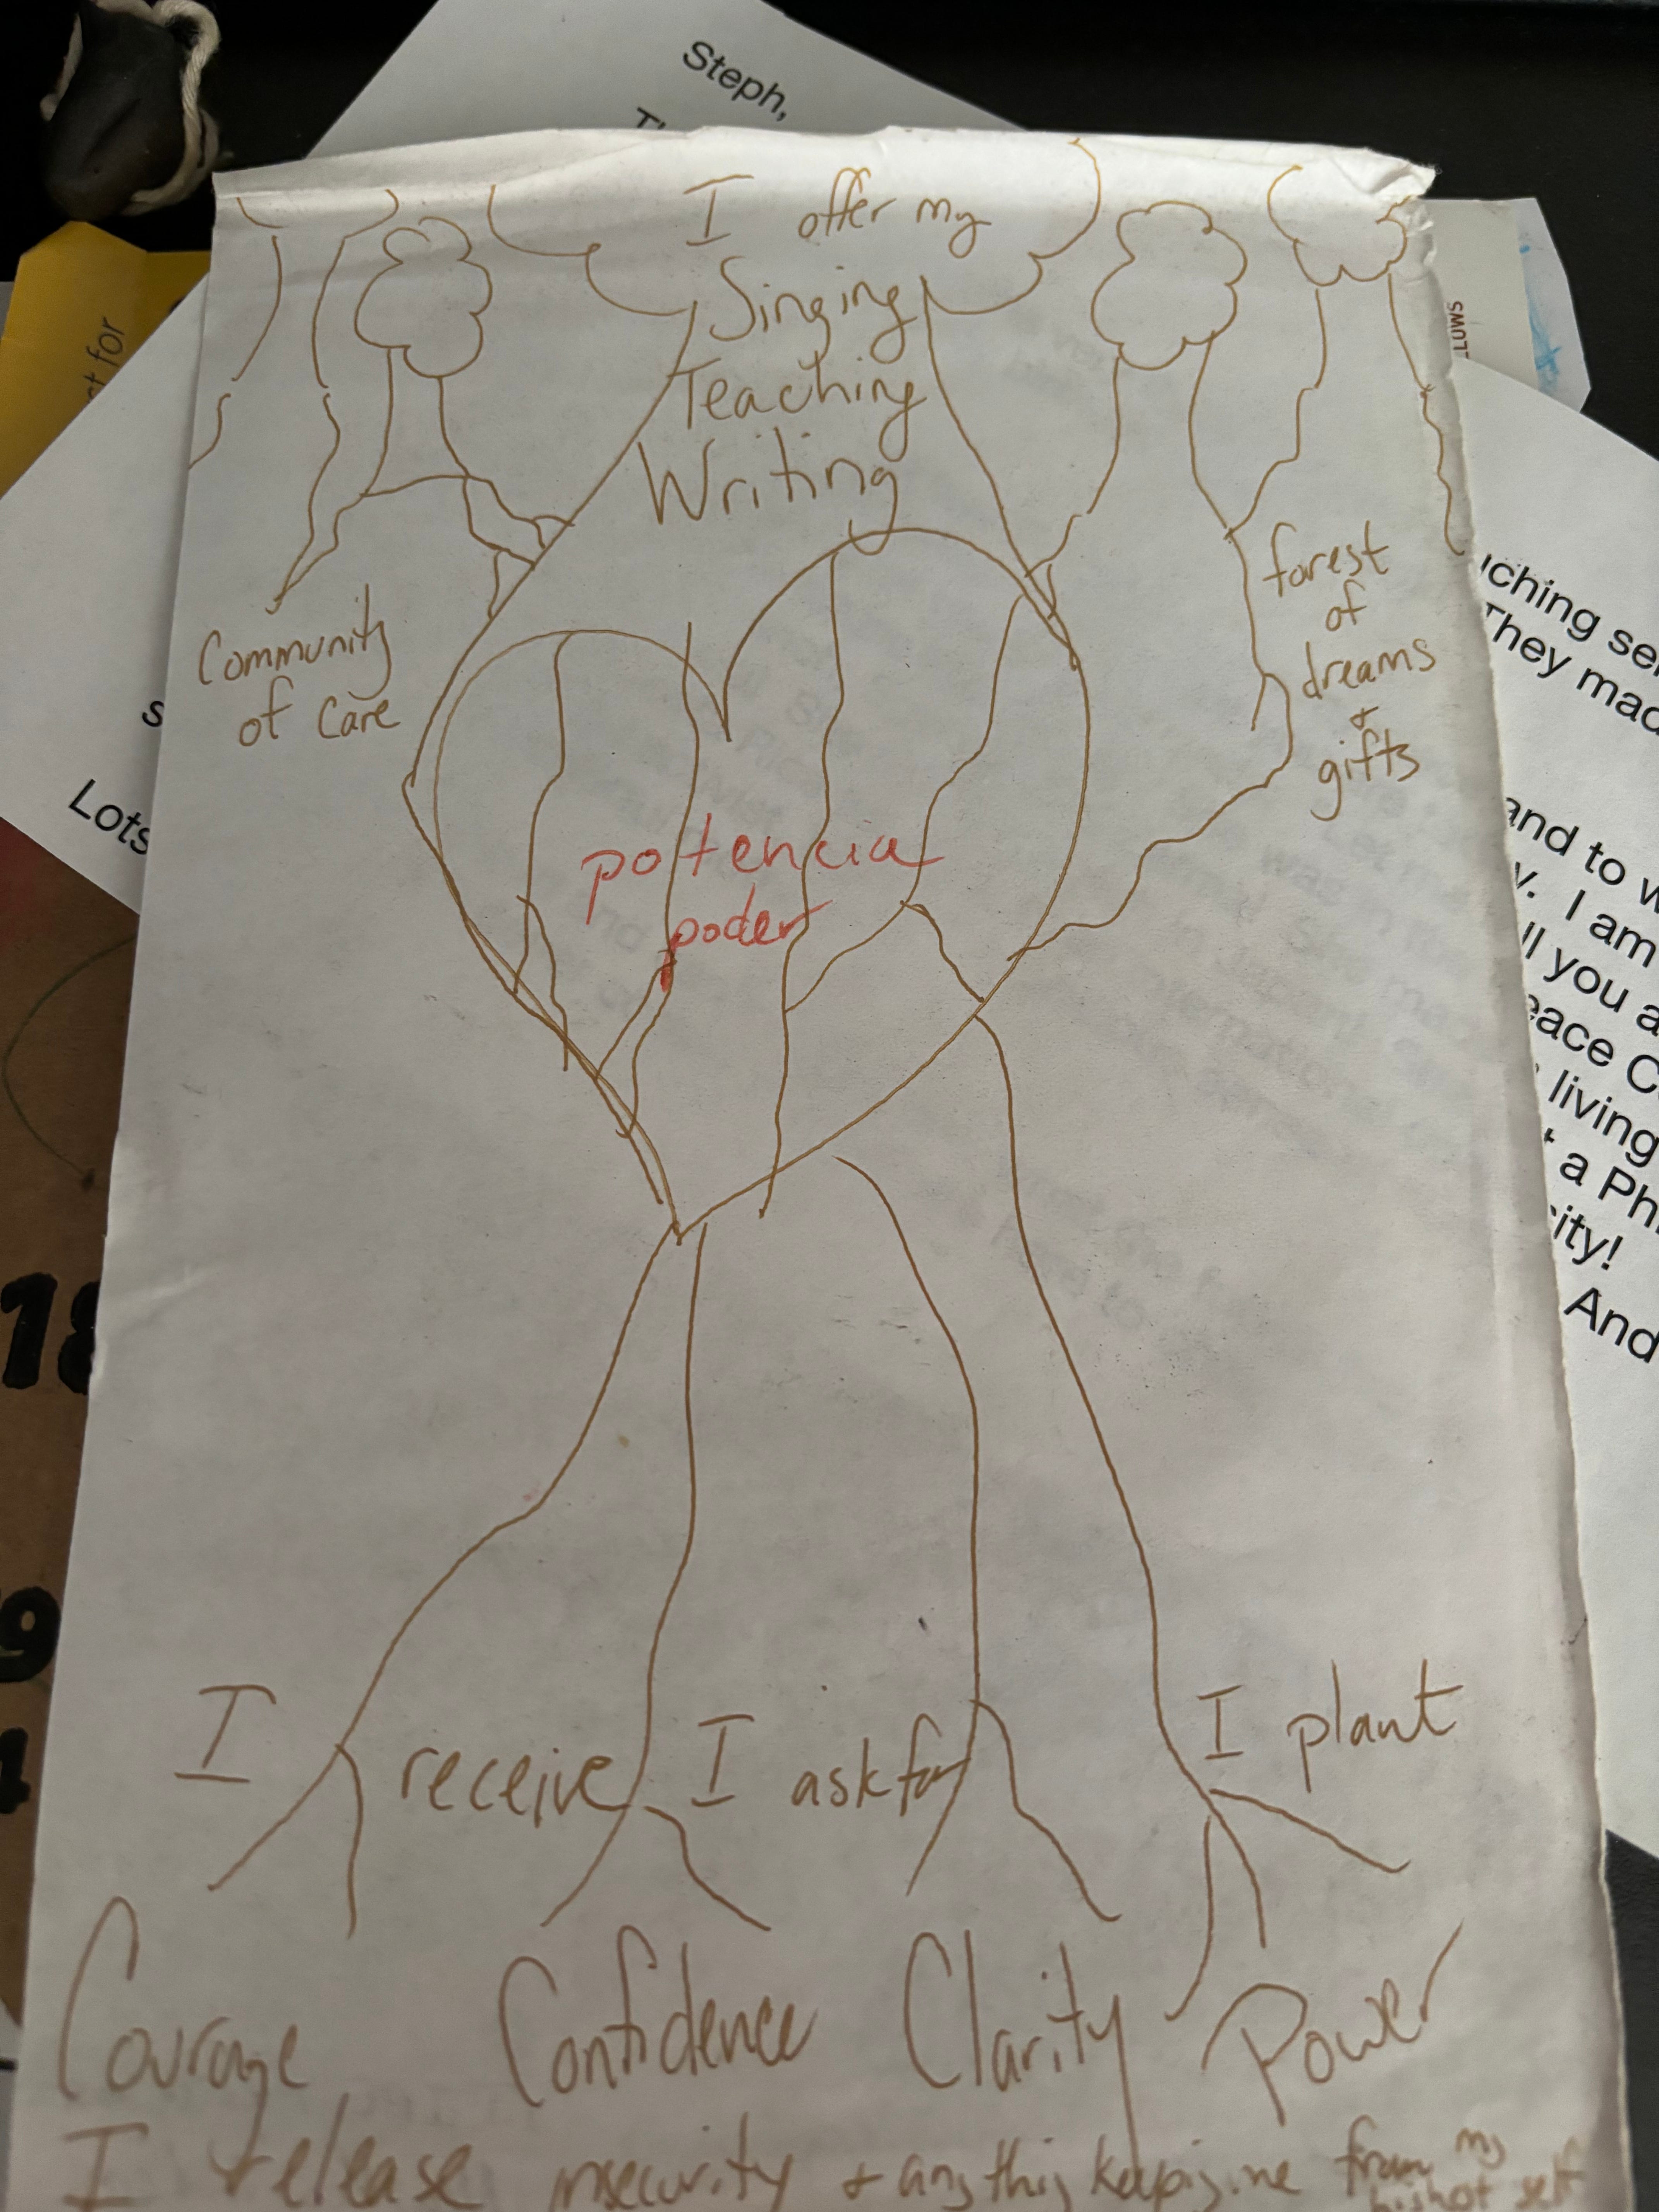 Steph,
I offer my
Singing
Teaching
Writing
Community
of Care
forest
of
dreams
+
gifts
potencia
poder
I receive I ask for I plant
Courage Confidence Clarity Power
I release insecurity + anything keeping me from my
highest self
st for
Lots
18
9
1
They mad
and to w
I am
ll you a
eace C
living
a Ph
city!
And